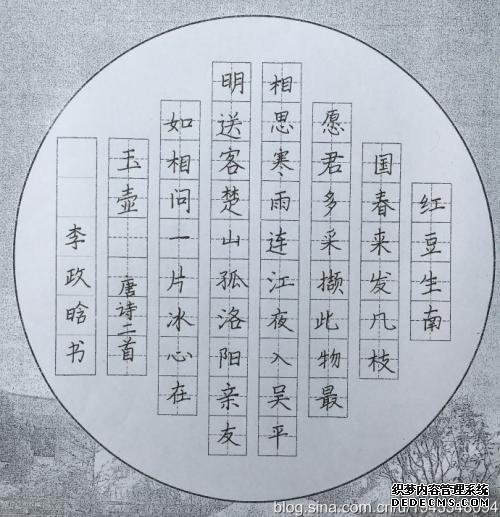 红豆生南
国春来发凡枝
愿君多采撷此物最
相思寒雨连江夜入吴平
明送客楚山孤洛阳亲友
如相问一片冰心在
玉壶 唐诗二首
李政晗书
织梦内容管理系统
DEDECMS.COM